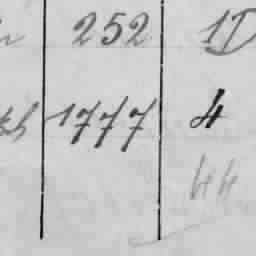 252 1D
1777 4
44